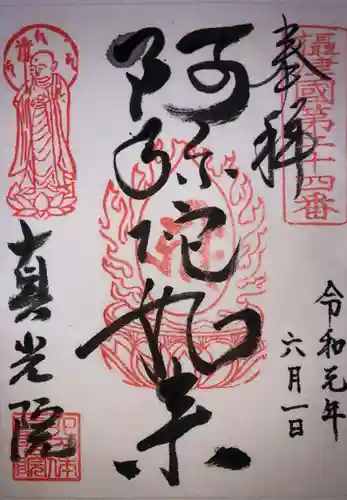 奉拝
攝津國第六十四番
令和元年
六月一日
阿弥陀如来
真光院